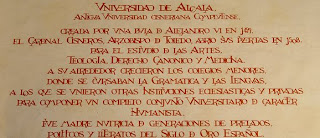 VNIVERSIDAD DE ALCALA,
ANTIGVA VNIVERSIDAD CISNERIANA COMPLVTENSE,
CREADA POR VNA BVLA DE ALEJANDRO VI EN
EL CARDENAL CISNEROS, ARZOBISPO DE TOLEDO, ABRIO SVS PVERTAS EN 1508.
PARA EL ESTVDIO DE LAS ARTES,
TEOLOGIA, DERECHO CANONICO Y MEDICINA.
A SV ALREDEDOR CRECIERON LOS COLEGIOS MENORES,
DONDE SE CVRSABAN LA GRAMATICA Y LAS LENGVAS,
A LOS QVE SE VNIERON OTRAS INSTITVCIONES ECLESIASTICAS Y PRIVADAS
PARA COMPONER VN COMPLETO CONJVNTO VNIVERSITARIO DE CARACTER
HVMANISTA.
FVE MADRE NVTRICIA DE GENERACIONES DE PRELADOS,
POLITICOS Y LITERATOS DEL SIGLO DE ORO ESPAÑOL.